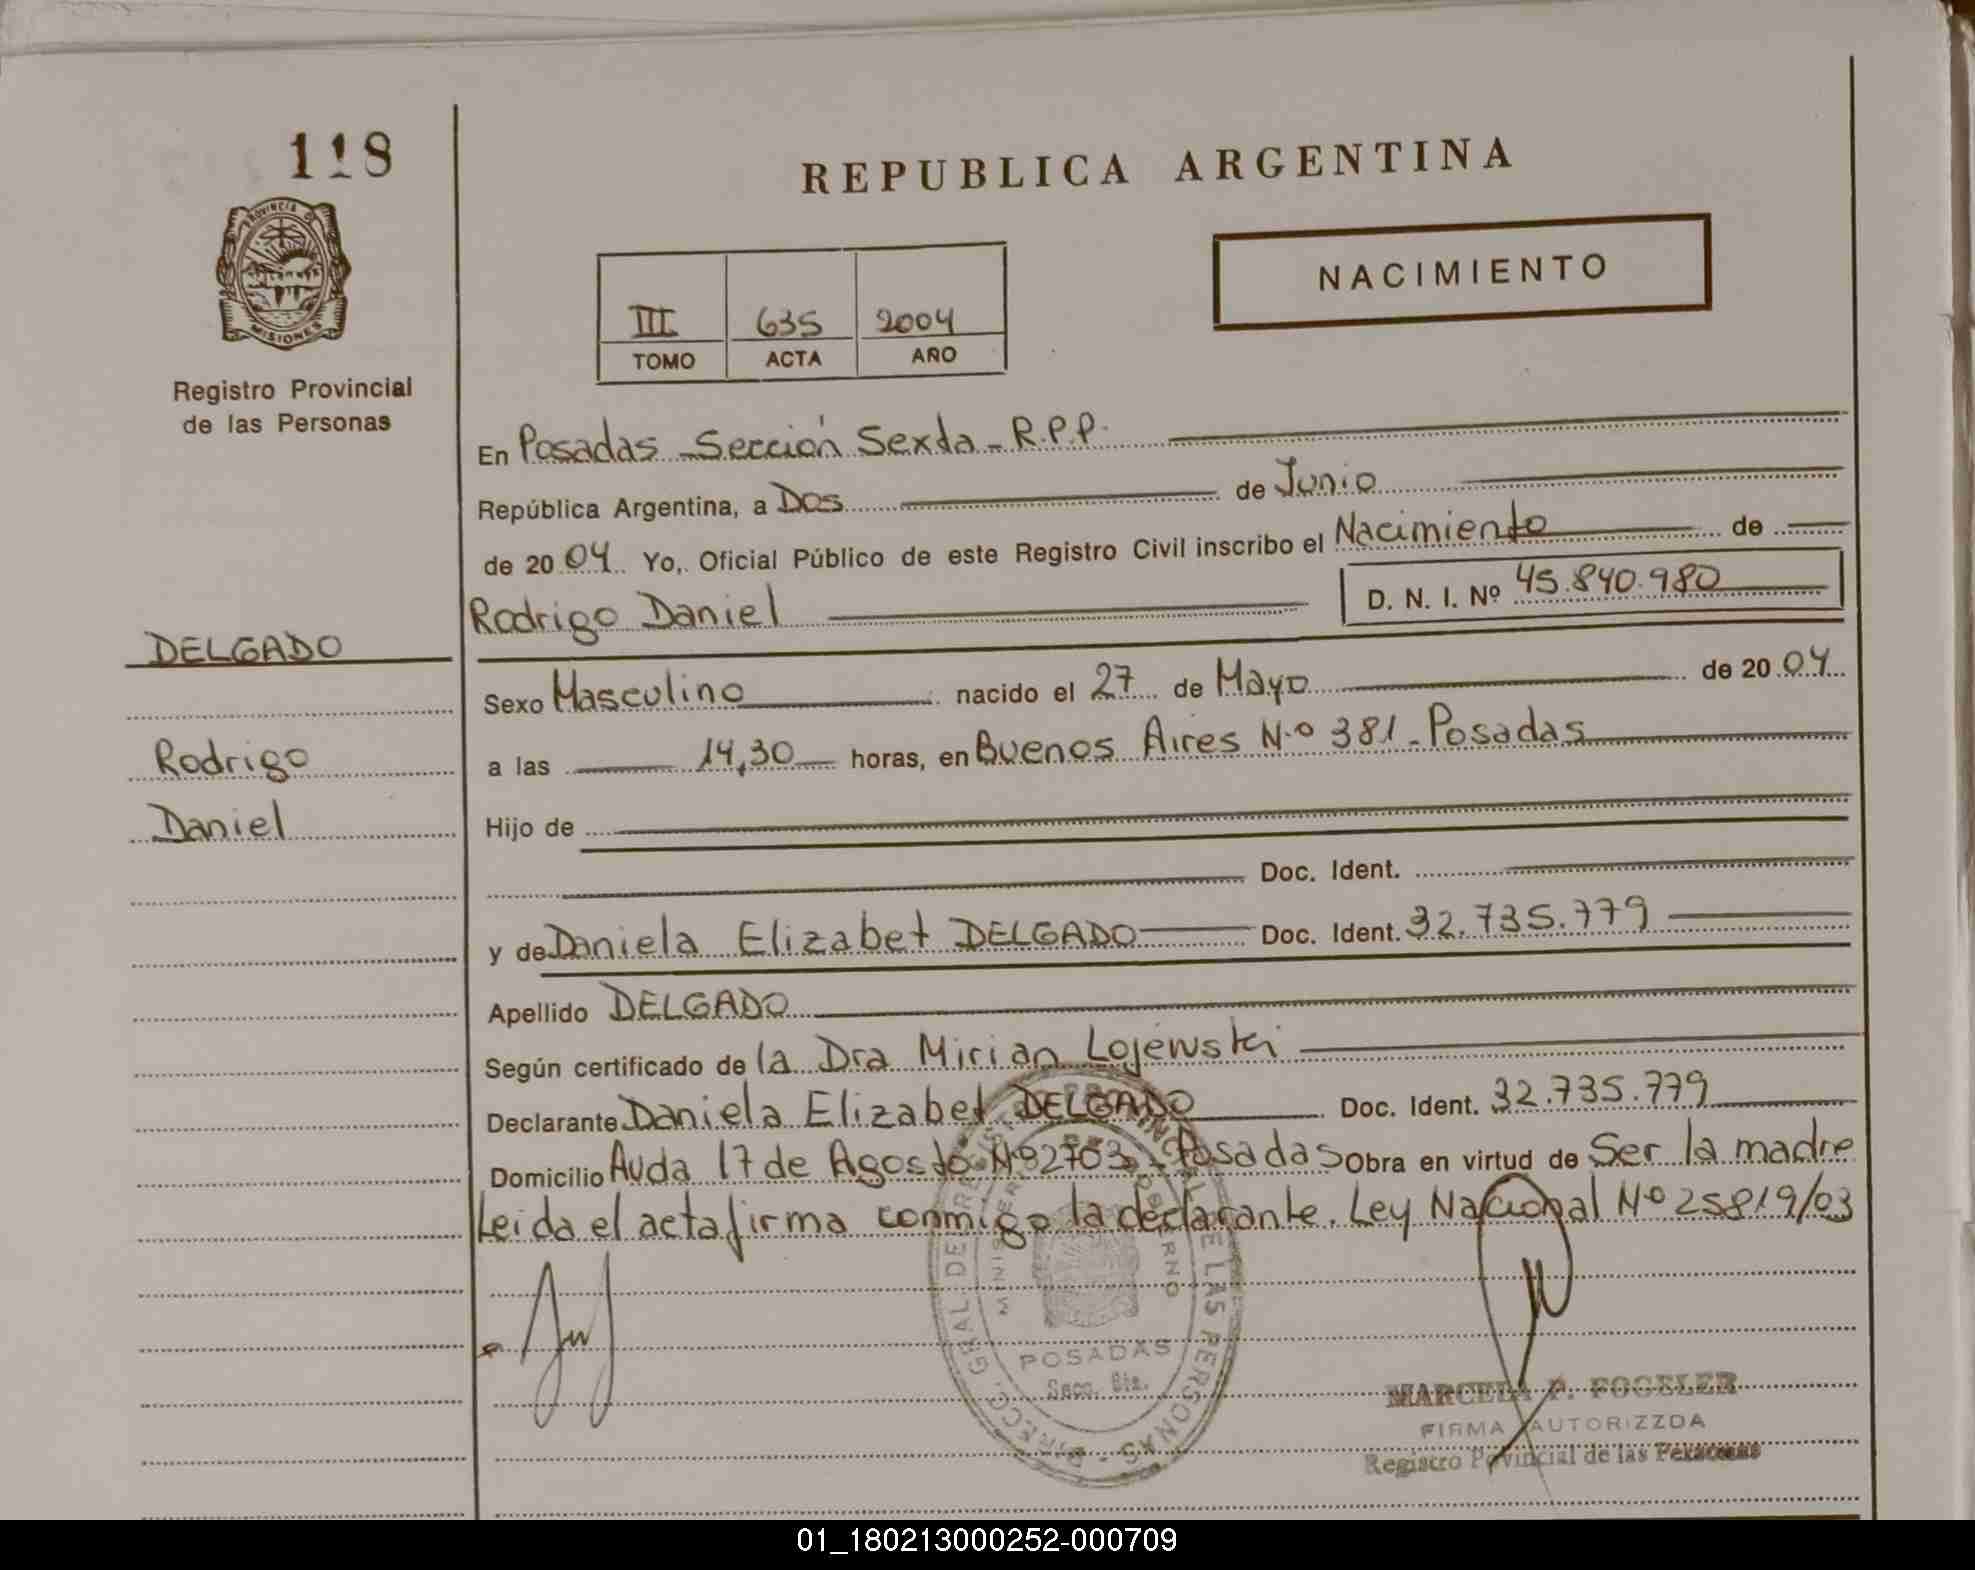 118
PROVINCIA DE
MISIONES
Registro Provincial
de las Personas
REPUBLICA ARGENTINA
NACIMIENTO
III 635 2004
TOMO ACTA AÑO
En Posadas - Sección Sexta - R.P.P.
República Argentina, a Dos de Junio
de 2004 Yo, Oficial Público de este Registro Civil inscribo el Nacimiento de
Rodrigo Daniel D. N. I. Nº 45.840.980
DELGADO
Rodrigo
Daniel
Sexo Masculino nacido el 27 de Mayo de 2004
a las 14,30 horas, en Buenos Aires Nº 381 - Posadas
Hijo de
Doc. Ident.
y de Daniela Elizabet DELGADO Doc. Ident. 32.735.779
Apellido DELGADO
Según certificado de la Dra Mirian Lojewski
Declarante Daniela Elizabet DELGADO Doc. Ident. 32.735.779
Domicilio Avda 17 de Agosto Nº 2703 - Posadas Obra en virtud de Ser la madre
Leida el acta firma conmigo la declarante. Ley Nacional Nº 25819/03
DIRECC. GRAL. DE REGISTRO PROVINCIAL DE LAS PERSONAS
POSADAS
Secc. 6ta.
MARCELA P. FOGELER
FIRMA AUTORIZZDA
Registro Provincial de las Personas
01_180213000252-000709